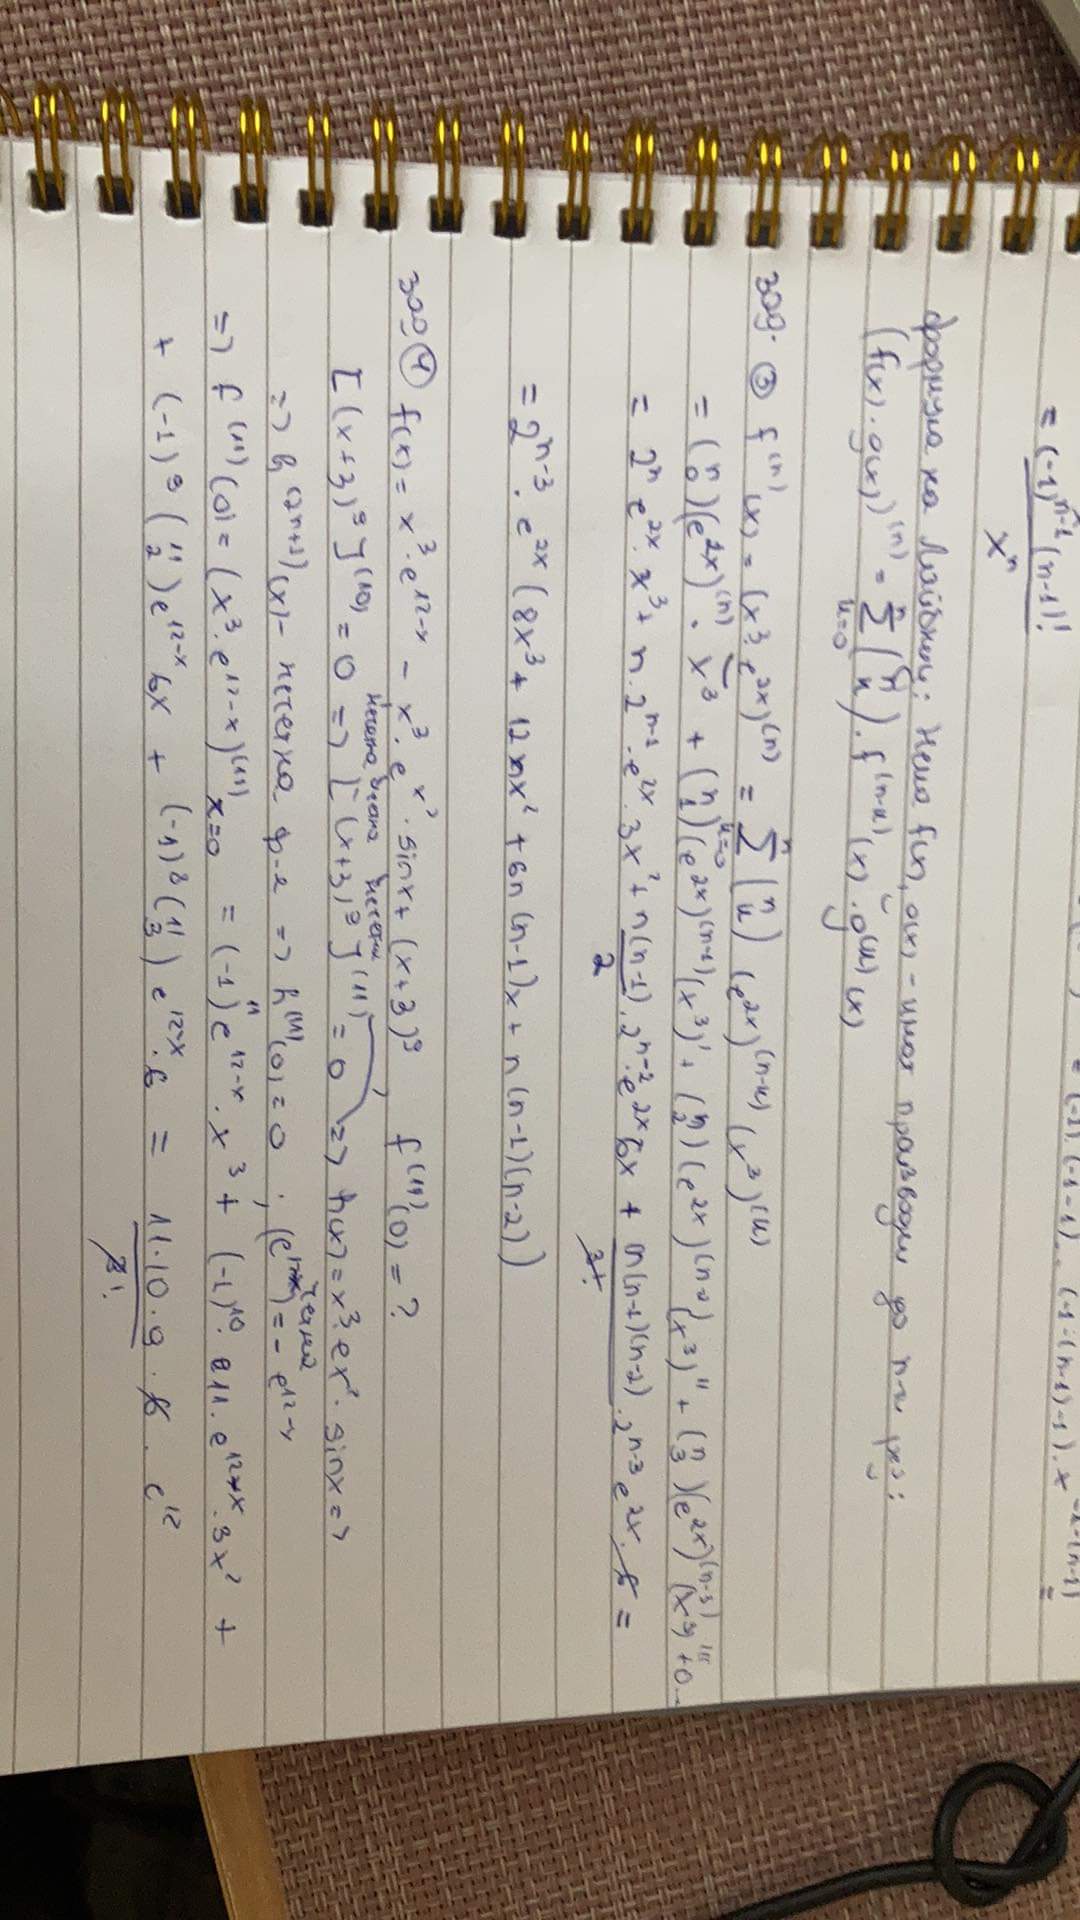 = (-1). (-1-1)... (-1-(n-1)-1). x^{-1-(n-1)} =
= (-1)^{n-1} (n-1)! / x^n
Формула на Лайбниц: Нека f(x), g(x) - имат производни до n-ти ред:
(f(x).g(x))^{(n)} = \sum_{k=0}^{n} (n k). f^{(n-k)}(x). g^{(k)}(x)
зад. ③ f^{(n)}(x) = (x^3. e^{2x})^{(n)} = \sum_{k=0}^{n} (n k) (e^{2x})^{(n-k)} (x^3)^{(k)}
= (n 0)(e^{2x})^{(n)}. x^3 + (n 1)(e^{2x})^{(n-1)}(x^3)' + (n 2)(e^{2x})^{(n-2)}(x^3)'' + (n 3)(e^{2x})^{(n-3)}(x^3)''' + 0...
= 2^n e^{2x}. x^3 + n. 2^{n-1}. e^{2x}. 3x^2 + n(n-1)/2. 2^{n-2}. e^{2x} 6x + n(n-1)(n-2)/3!. 2^{n-3} e^{2x}. 6 =
= 2^{n-3}. e^{2x} (8x^3 + 12nx^2 + 6n(n-1)x + n(n-1)(n-2))
зад ④ f(x) = x^3. e^{12-x} - x^3. e^{x^2}. sinx + (x+3)^9 f^{(11)}(0) = ?
нечетна четна нечетна
[(x+3)^9]^{(10)} = 0 => [(x+3)^9]^{(11)} = 0 => h(x) = x^3. e^{x^2}. sinx =>
четна
=> h^{(2n+1)}(x) - нечетна ф-я => h^{(11)}(0) = 0 ; (e^{12-x})' = -e^{12-x}
=> f^{(11)}(0) = (x^3. e^{12-x})^{(11)} x=0 = (-1)^{11} e^{12-x}. x^3 + (-1)^{10}. 11. e^{12-x}. 3x^2 +
+ (-1)^9 (11 2) e^{12-x} 6x + (-1)^8 (11 3) e^{12-x}. 6 = 11.10.9/3!. 6. e^{12}